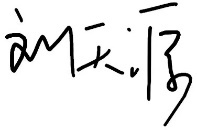 刘天源